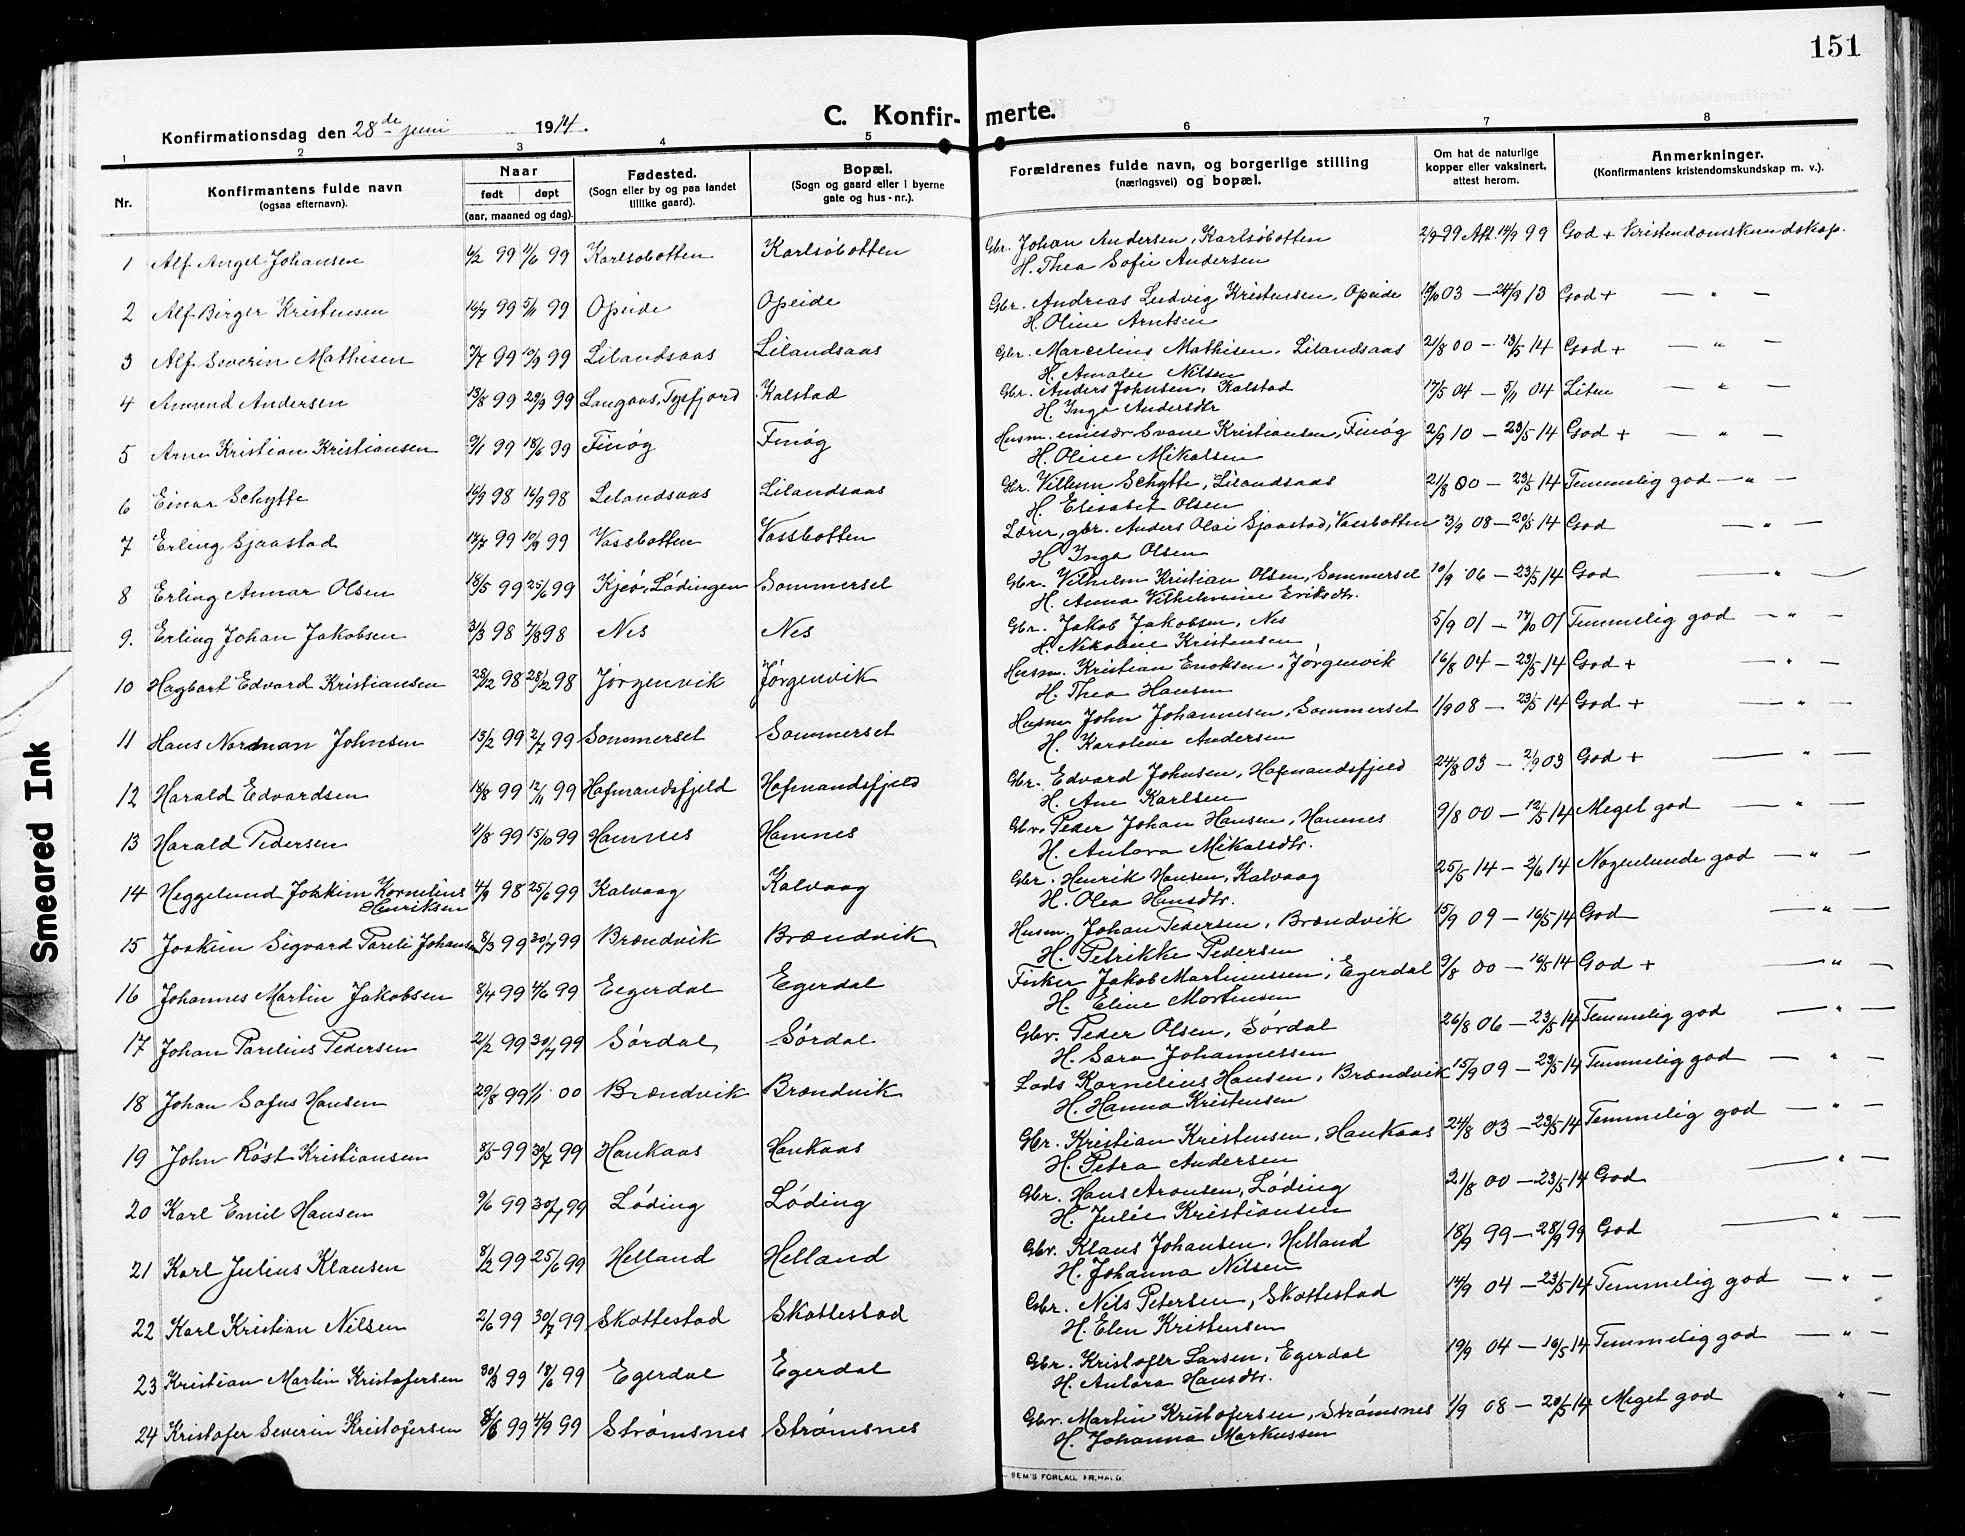 151
C. Konfir- merte.
Konfirmationsdag den 28de juni 1914.
1 2 3 4 5 6 7 8
Nr.
Konfirmantens fulde navn
(ogsaa efternavn).
Naar
født døpt
(aar, maaned og dag).
Fødested.
(Sogn eller by og paa landet
tillike gaard).
Bopæl.
(Sogn og gaard eller i byerne
gate og hus-nr.).
Forældrenes fulde navn, og borgerlige stilling
(næringsvei) og bopæl.
Om hat de naturlige
kopper eller vaksinert,
attest herom.
Anmerkninger.
(Konfirmantens kristendomskundskap m. v.).
1 Alf Angel Johansen 6/2 99 11/6 99 Karlsøbotten Karlsøbotten Gbr. Johan Andersen, Karlsøbotten 2/9 99 Att. 14/9 99 God + Kristendomskundskap.
H. Thea Sofie Andersen
2 Alf Birger Kristensen 16/7 99 5/11 99 Opeide Opeide Gbr. Andreas Ludvig Kristensen, Opeide 10/10 03 — 24/9 13 God + — " —
H. Oline Arntsen
3 Alf Severin Mathisen 7/7 99 10/9 99 Lilandsaas Lilandsaas Gbr. Marcelius Mathisen, Lilandsaas 21/8 00 — 13/5 14 God + — " —
H. Amalie Nilsen
4 Amund Andersen 13/8 99 29/9 99 Langaas, Tysfjord Kalstad Gbr. Anders Johnsen, Kalstad 17/5 04 — 5/11 04 Liten — " —
H. Inga Andersdtr
5 Arne Kristian Kristiansen 9/1 99 18/6 99 Finøg Finøg Husm. Svane Kristiansen, Finøg 2/9 10 — 23/5 14 God + — " —
H. Oline Mikalsen
6 Einar Schytte 16/9 98 16/9 98 Lilandsaas Lilandsaas Gbr. Villum Schytte, Lilandsaas 21/8 00 — 23/5 14 Temmelig god — " —
H. Elisabet Olsen
7 Erling Sjaastad 17/7 99 10/9 99 Vassbotten Vassbotten Lærer, gbr. Anders Olai Sjaastad, Vassbotten 3/9 08 — 20/5 14 God — " —
H. Inga Olsen
8 Erling Annar Olsen 18/5 99 25/6 99 Kjeø, Lødingen Sommerset Gbr. Vilhelm Kristian Olsen, Sommerset 10/9 06 — 23/5 14 God — " —
H. Anna Vilhelmine Eriksdtr.
9. Erling Johan Jakobsen 31/3 98 7/8 98 Nes Nes Gbr. Jakob Jakobsen, Nes 5/9 01 — 17/10 01 Temmelig god — " —
H. Nikoline Kristensen
10 Hagbart Edvard Kristiansen 28/12 98 28/12 98 Jørgenvik Jørgenvik Husm. Kristian Enoksen, Jørgenvik 16/8 04 — 23/5 14 God + — " —
H. Thea Hansen
11 Hans Nordman Johnsen 13/2 99 2/7 99 Sommerset Sommerset Husm John Johannesen, Sommerset 1/9 08 — 23/5 14 God + — " —
H. Karoline Andersen
12 Harald Edvardsen 18/8 99 12/11 99 Hofmandsfjeld Hofmandsfjeld Gbr. Edvard Johnsen, Hofmandsfjeld 24/8 03 — 2/9 03 God + — " —
H. Ane Karlsen
13 Harald Pedersen 1/8 99 15/10 99 Hamnes Hamnes Gbr. Peder Johan Hansen, Hamnes 9/8 00 — 12/5 14 Meget god — " —
H. Antora Mikalsdtr.
14 Heggelund Joakim Kornelius Henriksen 4/9 98 25/6 99 Kalvaag Kalvaag Gbr. Henrik Hansen, Kalvaag 25/5 14 — 2/6 14 Nogenlunde god — " —
H. Olea Hansdtr.
15 Joakim Sigvard Pareli Johansen 8/3 99 30/7 99 Brændvik Brændvik Husm. Johan Pedersen, Brændvik 15/9 09 — 16/5 14 God — " —
H. Petrikke Pedersen
16 Johannes Martin Jakobsen 8/4 99 4/6 99 Eegerdal Egerdal Fisker Jakob Martinussen, Egerdal 9/8 00 — 16/5 14 God + — " —
H. Eline Mortensen
17 Johan Parelius Pedersen 21/2 99 30/7 99 Sørdal Sørdal Gbr. Peder Olsen, Sørdal 26/8 06 — 23/5 14 Temmelig god — " —
H. Sara Johannessen
18 Johan Sofus Hansen 29/8 99 1/1 00 Brændvik Brændvik Lods Kornelius Hansen, Brændvik 15/9 09 — 23/5 14 Temmelig god — " —
H. Hanna Kristensen
19 John Røst Kristiansen 8/5 99 30/7 99 Haukaas Haukaas Gbr. Kristian Kristensen, Haukaas 24/8 03 — 23/5 14 Temmelig god — " —
H. Petra Andersen
20 Karl Emil Hansen 9/6 99 30/7 99 Løding Løding Gbr. Hans Aronsen, Løding 21/8 00 — 23/5 14 God — " —
H. Julie Kristiansen
21 Karl Julius Klausen 8/2 99 25/6 99 Helland Helland Gbr. Klaus Johansen, Helland 18/9 99 — 28/9 99 God — " —
H. Johanna Nilsen
22 Karl Kristian Nilsen 2/6 99 30/7 99 Skottestad Skottestad Gbr. Nils Petersen, Skottestad 14/9 04 — 23/5 14 Temmelig god — " —
H. Elen Kristensen
23 Kristian Martin Kristofersen 30/3 99 18/6 99 Egerdal Egerdal Gbr. Kristofer Larsen, Egerdal 19/9 04 — 16/5 14 Temmelig god — " —
H. Antora Hansdtr.
24 Kristofer Severin Kristofersen 8/6 99 4/9 99 Strømsnes Strømsnes Gbr. Martin Kristofersen, Strømsnes 1/9 08 — 20/5 14 Meget god " —
H. Johanna Markussen
SEM'S FORLAG, FR.HALD.
Smeared Ink